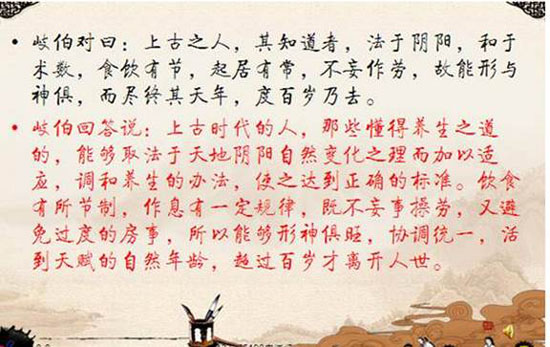 岐伯对曰：上古之人，其知道者，法于阴阳，和于
术数，食饮有节，起居有常，不妄作劳，故能形与
神俱，而尽终其天年，度百岁乃去。
岐伯回答说：上古时代的人，那些懂得养生之道
的，能够取法于天地阴阳自然变化之理而加以适
应，调和养生的办法，使之达到正确的标准。饮食
有所节制，作息有一定规律，既不妄事操劳，又避
免过度的房事，所以能够形神俱旺，协调统一，活
到天赋的自然年龄，超过百岁才离开人世。